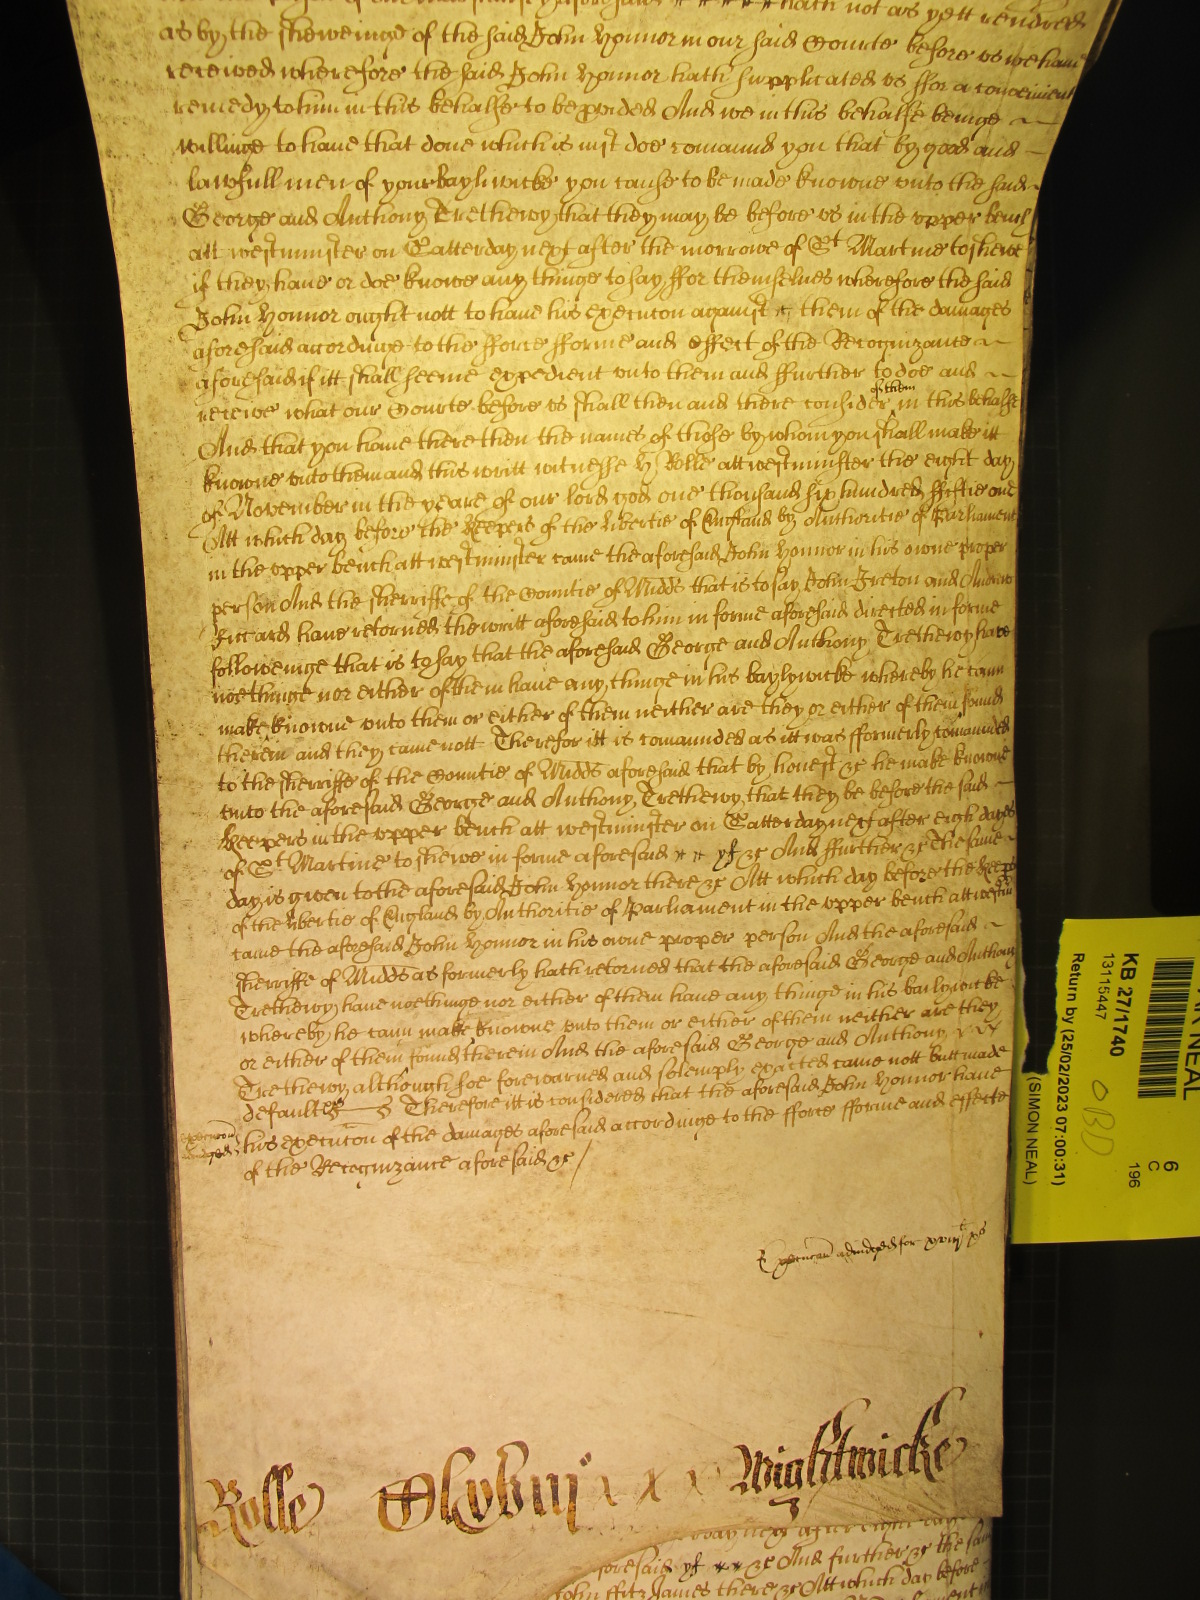 hath not as yett rendred
as by the sheweinge of the said John Honnor in our said Courte before us wee haue
receiued wherefore the said John Honnor hath supplicated us ffor a convenient
remedy to him in this behalfe to be pvided And we in this behalfe beinge
willinge to haue that done which is iust doe comaund you that by good and
lawfull men of your bayliwicke you cause to be made knowne unto the said
George and Anthony Trethewy that they may be before us in the upper bench
att westminster on Satterday next after the morrowe of St Martine to shewe
if they haue or doe knowe any thinge to say ffor themselues wherefore the said
John Honnor ought nott to haue his execucon against them of the damages
aforesaid accordinge to the fforce fforme and effect of the Recognizance
aforesaid if itt shall seeme expedient unto them and ffurther to doe and
receiue what our Courte before us shall then and there consider of them in this behalfe
And that you haue there then the names of those by whom you shall make itt
knowne unto them and this writt witnesse H Rolle att westminster the eight day
of November in the yeare of our lord god one thousand six hundred ffiftie one
Att which day before the Keepers of the libertie of England by Authoritie of Parliament
in the upper bench att westminster came the aforesaid John Honnor in his owne proper
person And the sherriffe of the Countie of Midds that is to say John Ireton and Andrew
Riccard haue retorned the writt aforesaid to him in forme aforesaid directed in forme
followeinge that is to say that the aforesaid George and Anthony Trethewy haue
noethinge nor either of them haue any thinge in his baylywicke whereby he cann
make knowne unto them or either of them neither are they or either of them found
therein and they came nott Therefor itt is comaunded as itt was fformerly comaunded
to the sherriffe of the Countie of Midds aforesaid that by honest &c he make knowne
unto the aforesaid George and Anthony Trethewy that they be before the said
Keepers in the upper bench att westminster on Satterday next after eight dayes
of St Martine to shewe in forme aforesaid yf &c And ffurther &c The same
day is given to the aforesaid John Honnor there &c Att which day before the Keepers
of the libertie of England by Authoritie of Parliament in the upper bench att westm
came the aforesaid John Honnor in his owne proper person And the aforesaid
sherriffe of Midds as formerly hath retorned that the aforesaid George and Anthony
Trethewy haue noethinge nor either of them haue any thinge in his bailywicke
whereby he cann make knowne unto them or either of them neither are they
or either of them found therein And the aforesaid George and Anthony
Trethewy although soe forewarned and solemply exacted came nott butt made
default Therefore itt is considered that the aforesaid John Honnor haue
execucon
his execucon of the damages aforesaid accordinge to the fforce fforme and effecte
of the Recognizance aforesaid &c
Execucon adiudged for
Rolle Wightwicke
next after eight
foresaid yf &c And further &c the same
John ffitz James there &c Att which day before
KB 27/1740
13115447
Return by (25/02/2023 07:00:31)
(SIMON NEAL)
NEAL
6
C
196
OBD